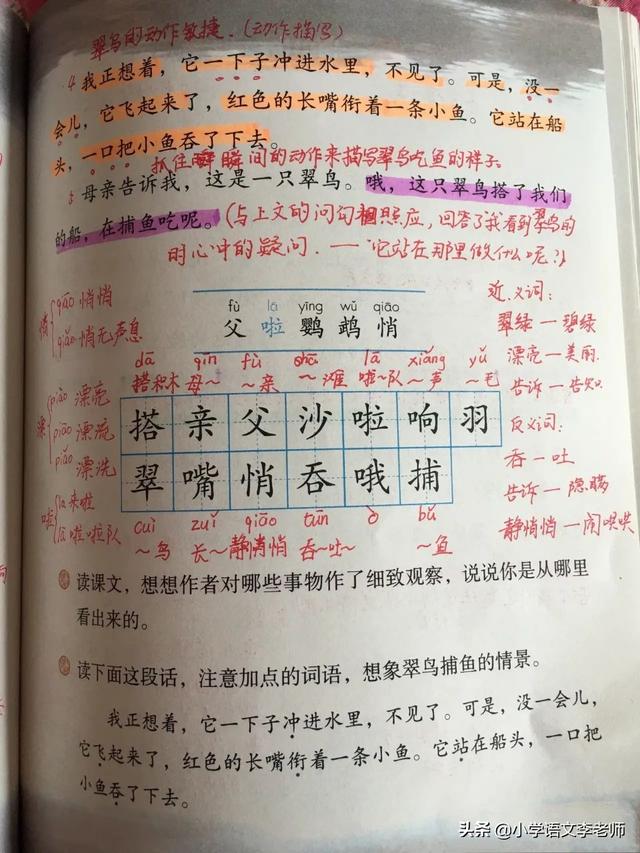 翠鸟的动作敏捷.(动作描写)
4 我正想着，它一下子冲进水里，不见了。可是，没一
会儿，它飞起来了，红色的长嘴衔着一条小鱼。它站在船
头，一口把小鱼吞了下去。
抓住瞬间的动作来描写翠鸟吃鱼的样子。
5 母亲告诉我，这是一只翠鸟。哦，这只翠鸟搭了我们
的船，在捕鱼吃呢。(与上文的问句相照应，回答了我看到翠鸟的
时心中的疑问. —— 它站在那里做什么呢？)
fù lā yīng wǔ qiāo
父 啦 鹦 鹉 悄
悄 qiāo 悄悄
qiǎo 悄无声息
漂 piào 漂亮
piāo 漂流
piǎo 漂洗
啦 la 来啦
lā 啦啦队
dā qīn fù shā lā xiǎng yǔ
搭积木 母～ ～亲 ～滩 啦～队 ～声 ～毛
搭 亲 父 沙 啦 响 羽
翠 嘴 悄 吞 哦 捕
cuì zuǐ qiāo tūn ò bǔ
～鸟 长～ 静悄悄 吞～吐～ ～鱼
近义词:
翠绿—碧绿
漂亮—美丽.
告诉—告知
反义词:
吞—吐
告诉—隐瞒
静悄悄—闹哄哄
读课文，想想作者对哪些事物作了细致观察，说说你是从哪里
看出来的。
读下面这段话，注意加点的词语，想象翠鸟捕鱼的情景。
我正想着，它一下子冲进水里，不见了。可是，没一会儿，
它飞起来了，红色的长嘴衔着一条小鱼。它站在船头，一口把
小鱼吞了下去。
头条 @小学语文李老师